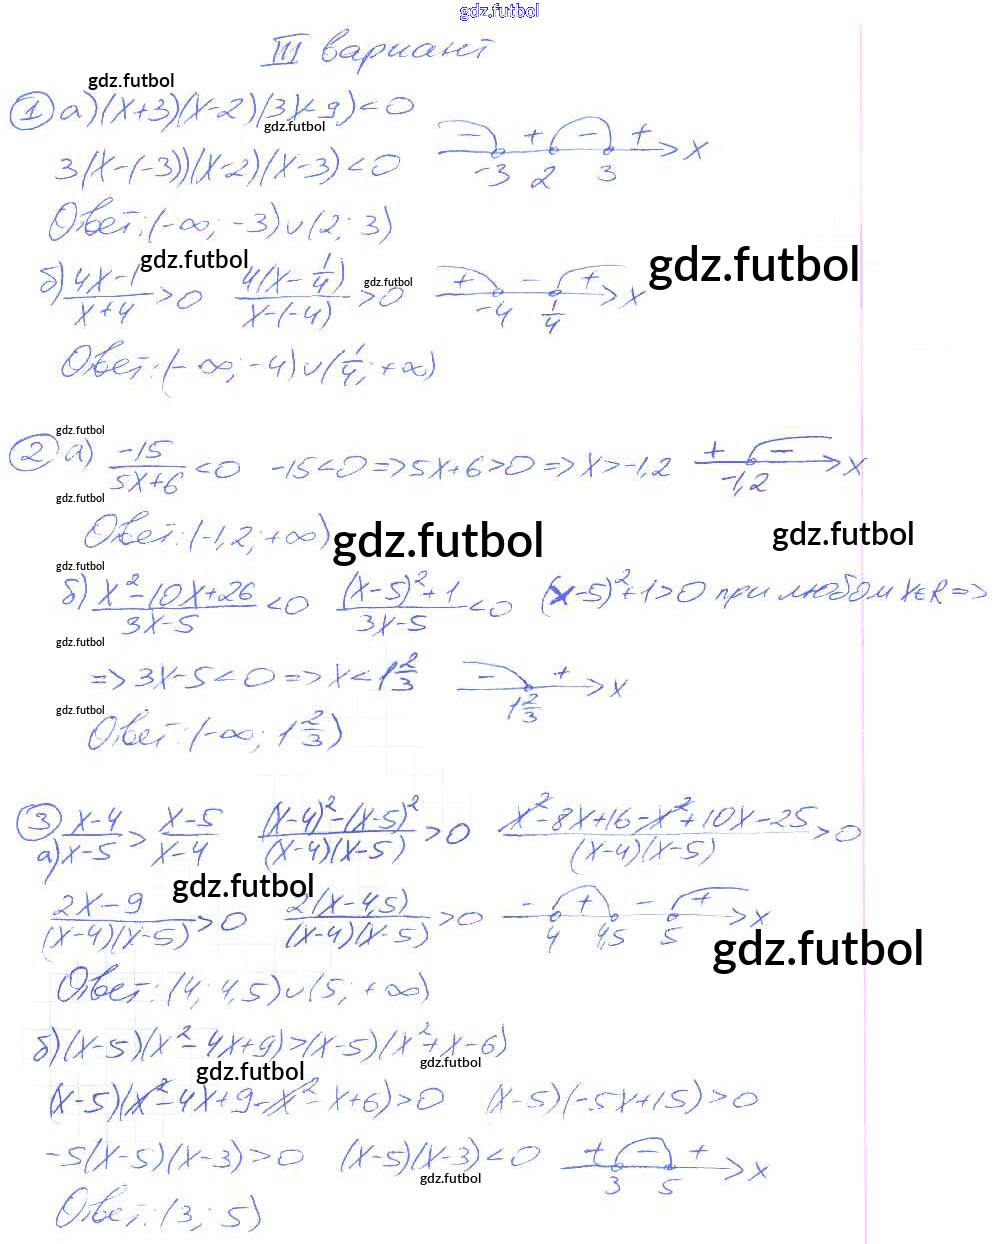 gdz.futbol
III вариант
gdz.futbol
① а) (x+3)(x-2)(3x-9)<0
gdz.futbol
3(x-(-3))(x-2)(x-3)<0
- + - + x
-3 2 3
Ответ: (-∞; -3)∪(2; 3)
gdz.futbol gdz.futbol
б) (4x-1)/(x+4)>0 4(x-1/4)/(x-(-4))>0 + - + x
gdz.futbol
-4 1/4
Ответ: (-∞; -4)∪(1/4; +∞)
gdz.futbol
② а) -15/(5x+6)<0 -15<0 => 5x+6>0 => x>-1,2 + - x
-1,2
gdz.futbol
Ответ: (-1,2; +∞)
gdz.futbol gdz.futbol
gdz.futbol
б) (x²-10x+26)/(3x-5)<0 ((x-5)²+1)/(3x-5)<0 (x-5)²+1>0 при любом x∈R =>
gdz.futbol
=> 3x-5<0 => x<1 2/3 - + x
1 2/3
gdz.futbol
Ответ: (-∞; 1 2/3)
③ а) (x-4)/(x-5)>(x-5)/(x-4) ((x-4)²-(x-5)²)/((x-4)(x-5))>0 (x²-8x+16-x²+10x-25)/((x-4)(x-5))>0
gdz.futbol
(2x-9)/((x-4)(x-5))>0 2(x-4,5)/((x-4)(x-5))>0 - + - + x
4 4,5 5
gdz.futbol
Ответ: (4; 4,5)∪(5; +∞)
б) (x-5)(x²-4x+9)>(x-5)(x²+x-6)
gdz.futbol gdz.futbol
(x-5)(x²-4x+9-x²-x+6)>0 (x-5)(-5x+15)>0
-5(x-5)(x-3)>0 (x-5)(x-3)<0 + - + x
gdz.futbol
3 5
Ответ: (3; 5)